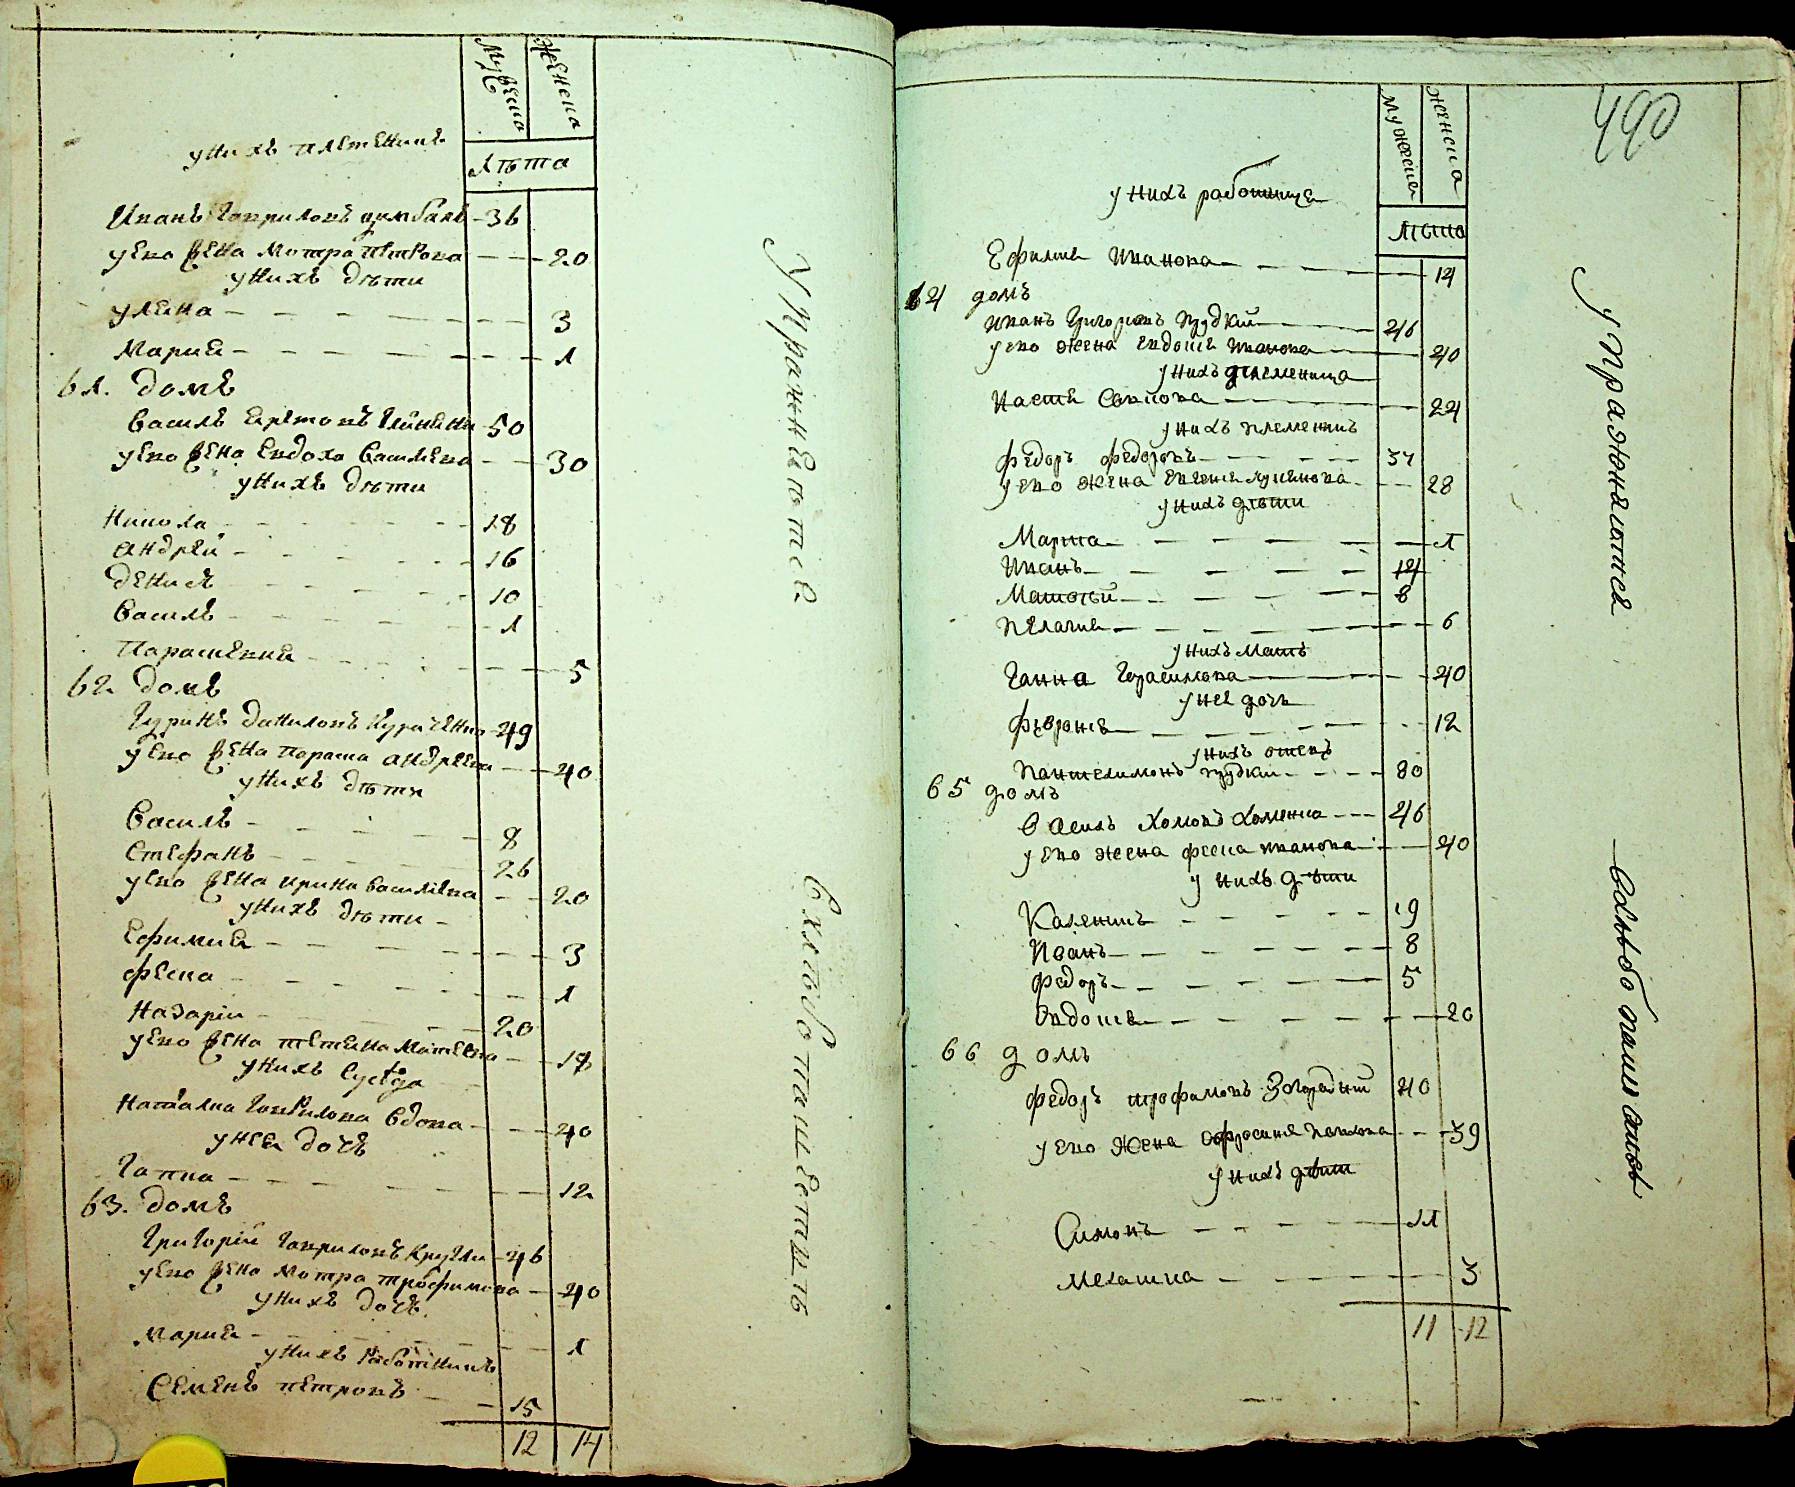 мужеска
женска
лѣта
у нихъ племеникъ
Иванъ Гавриловъ цимбалъ - 36
у его жена Мотра Петрова - 20
у нихъ дѣти
улита - 3
Мариа - 1
61. домъ
Василь
50
у его жена Евдоха Василева - 30
у нихъ дѣти
Никола - 18
Андрей - 16
Денисъ - 10
Василь - 1
Парашкевия - 5
62 домъ
Гуринъ Даниловъ Кураченко - 49
у его жена Параска Андреева - 40
у нихъ дѣти
Василь - 8
Стефанъ - 26
у его жена Ирина Василева - 20
у нихъ дѣти
Ефимиа - 3
Феска - 1
Назарій - 20
у его жена Тетиена Матвева - 18
у нихъ сусѣда
Наталка Гаврилова вдова - 40
у неи дочъ
Гапка - 12
63. домъ
Григорій Гавриловъ Кругли - 46
у его жена Мотра Трофимова - 40
у нихъ дочъ
Мариа - 1
у нихъ работникъ
Семенъ Петровъ - 15
12 14
Упражнаютса
в хлѣбопашествѣ
490
мужеска
женска
лѣта
у нихъ работница
Ефимиа Иванова - 14
64 домъ
Иванъ Григоровъ Прудкий - 46
у его жена Евдокиа Иванова - 40
у нихъ племеница
Настя Савкова - 24
у нихъ племеникъ
Федоръ Федоровъ - 37
у его жена Евгения Лукянова - 28
у нихъ дѣти
Марта - 1
Иванъ - 14
Матотъй - 8
Пелагиа - 6
у нихъ мать
Ганна Герасимова - 40
у ней дочь
Февроня - 12
у нихъ отецъ
Пантелимонъ Прудкий - 80
65 домъ
Василь Хомовъ Хоменко - 46
у его жена Феска Иванова - 40
у нихъ дѣти
Каленикъ - 19
Иванъ - 8
Федоръ - 5
Овдокиа - 20
66 домъ
Федоръ Трофимовъ Загородний 40
у его жена Ефросиня Павлова - 39
у нихъ дѣти
Симонъ - 11
Мелашка - 3
11 12
упражняютса
в хлѣбопашествѣ